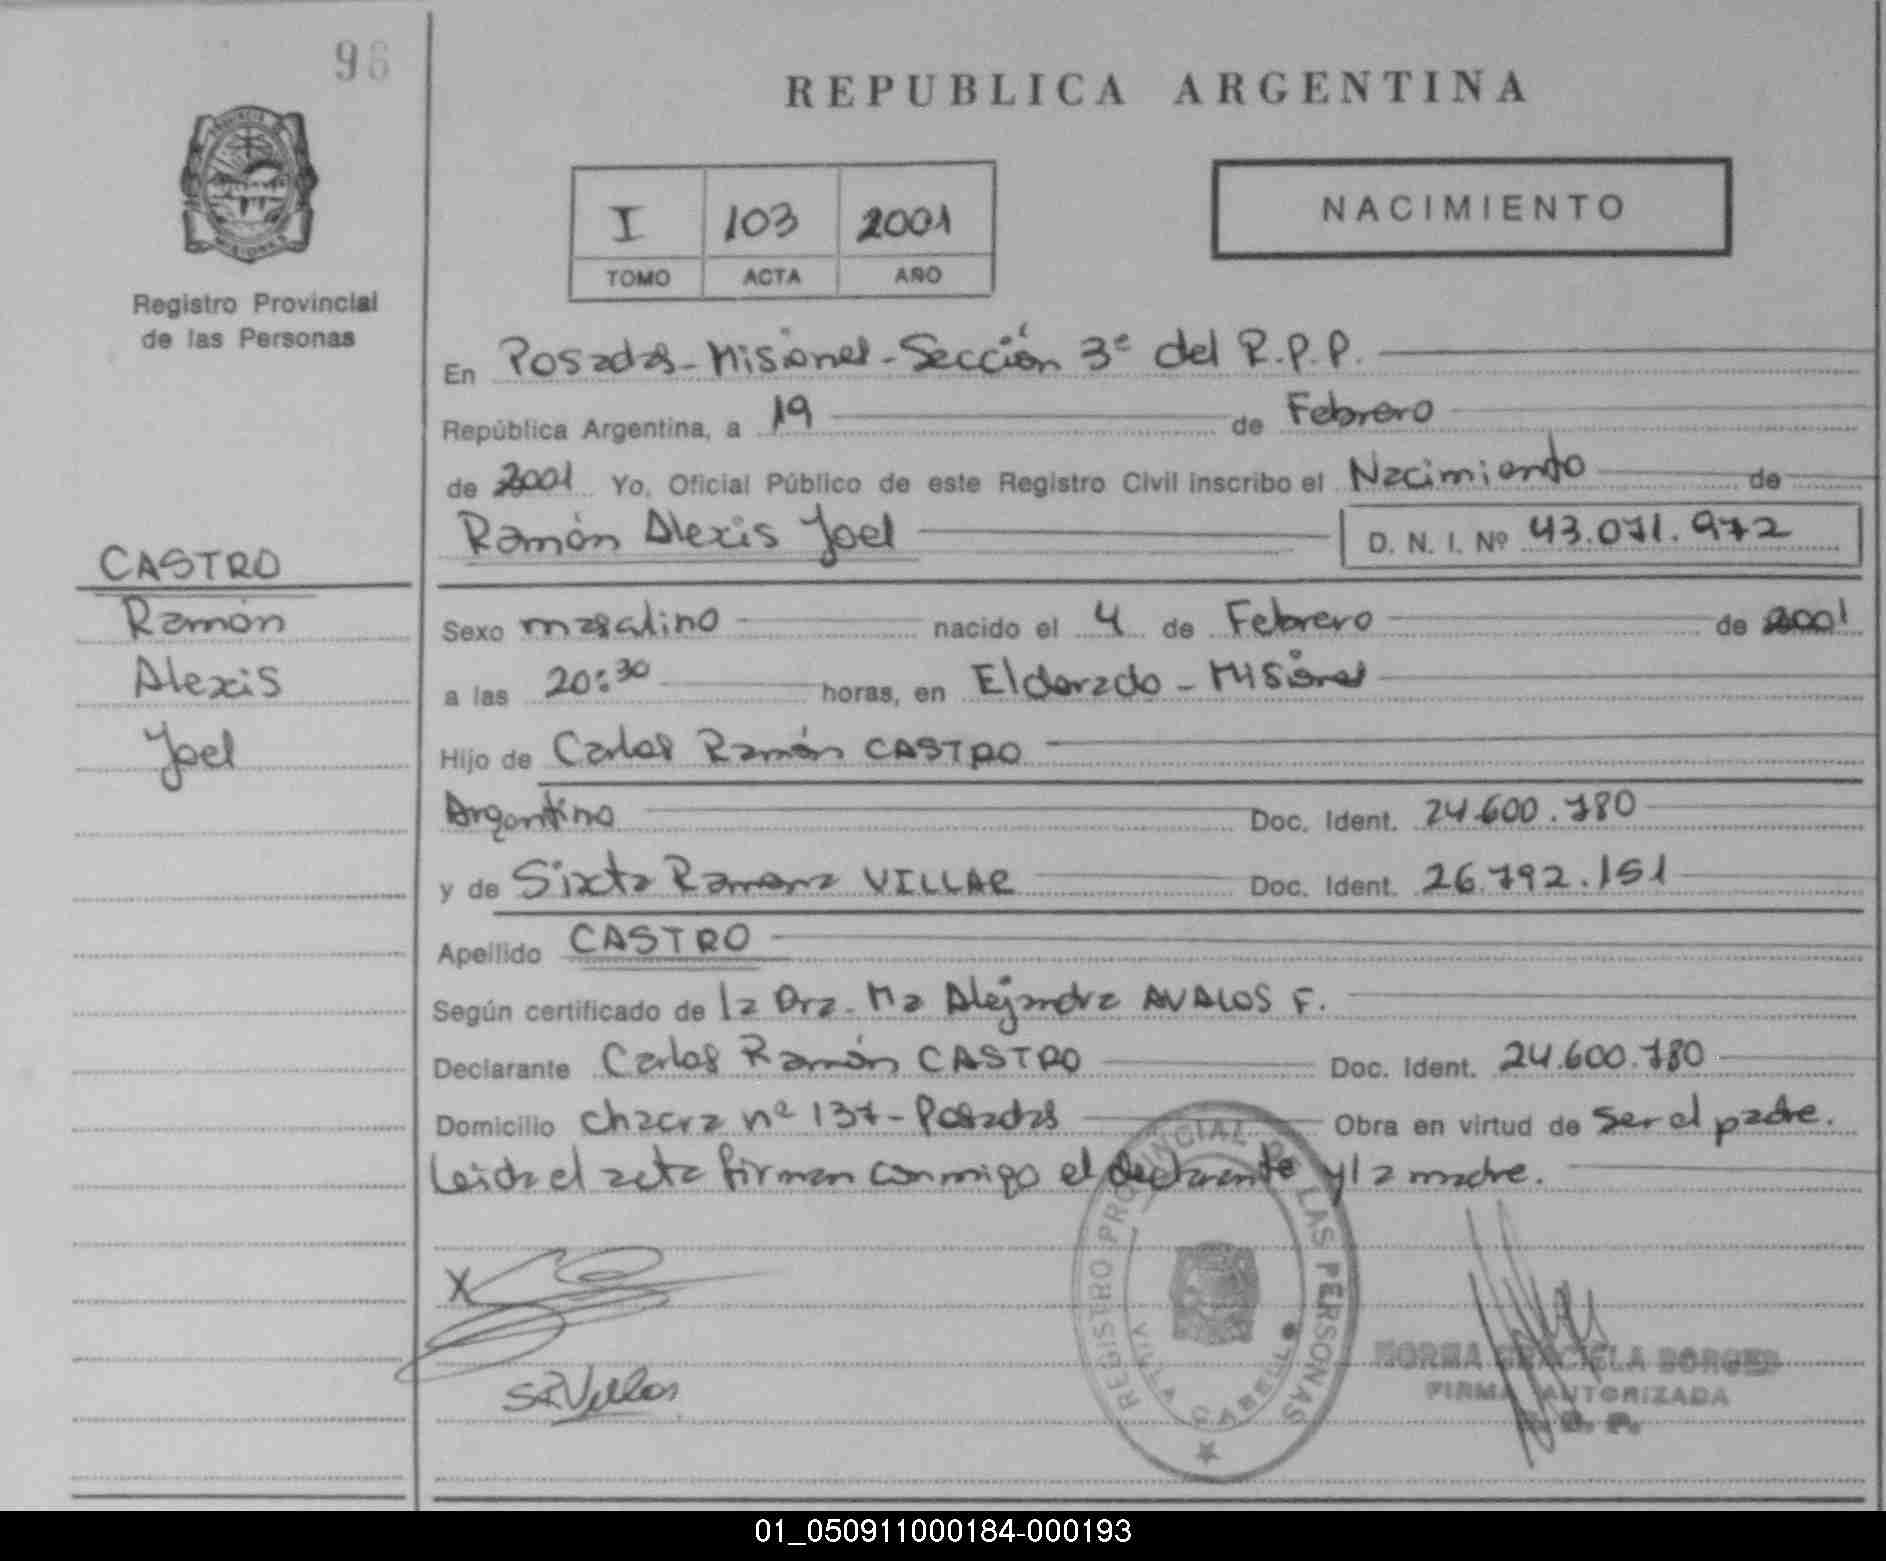 96
REPUBLICA ARGENTINA
PROVINCIA DE
MISIONES
Registro Provincial
de las Personas
I 103 2001
TOMO ACTA AÑO
NACIMIENTO
En Posadas - Misiones - Sección 3ª del R.P.P.
República Argentina, a 19 de Febrero
de 2001 Yo, Oficial Público de este Registro Civil inscribo el Nacimiento de
Ramón Alexis Joel D. N. I. Nº 43.071.972
CASTRO
Ramón
Alexis
Joel
Sexo masculino nacido el 4 de Febrero de 2001
a las 20:30 horas, en Eldorado - Misiones
Hijo de Carlos Ramón CASTRO
Argentino Doc. Ident. 24.600.780
y de Sixta Ramona VILLAR Doc. Ident. 26.792.151
Apellido CASTRO
Según certificado de la Dra. Ma Alejandra AVALOS F.
Declarante Carlos Ramón CASTRO Doc. Ident. 24.600.780
Domicilio chacra nº 137 - Posadas Obra en virtud de ser el padre.
Leida el acta firman conmigo el declarante y la madre.
X
REGISTRO PROVINCIAL DE LAS PERSONAS
VILLA CABELLO
NORMA GRACIELA BORGES
FIRMA AUTORIZADA
01_050911000184-000193